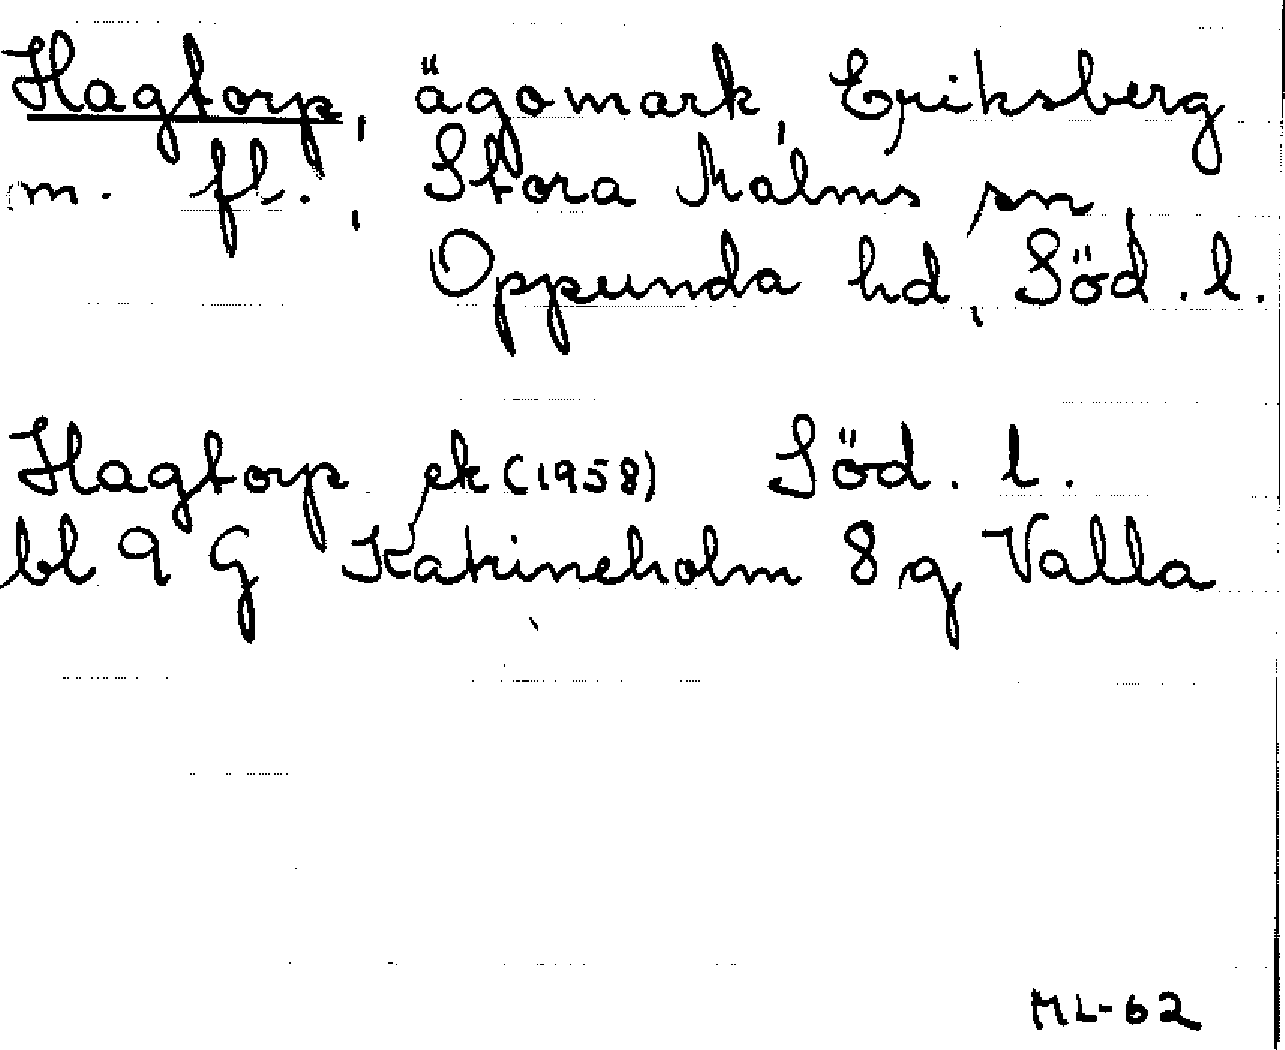 Hagtorp, ägomark, Eriksberg
m. fl., Stora Malms sn
Oppunda hd, Söd. l.
Hagtorp ek (1958) Söd. l.
bl 9 G Katrineholm 8 g Valla
ML-62